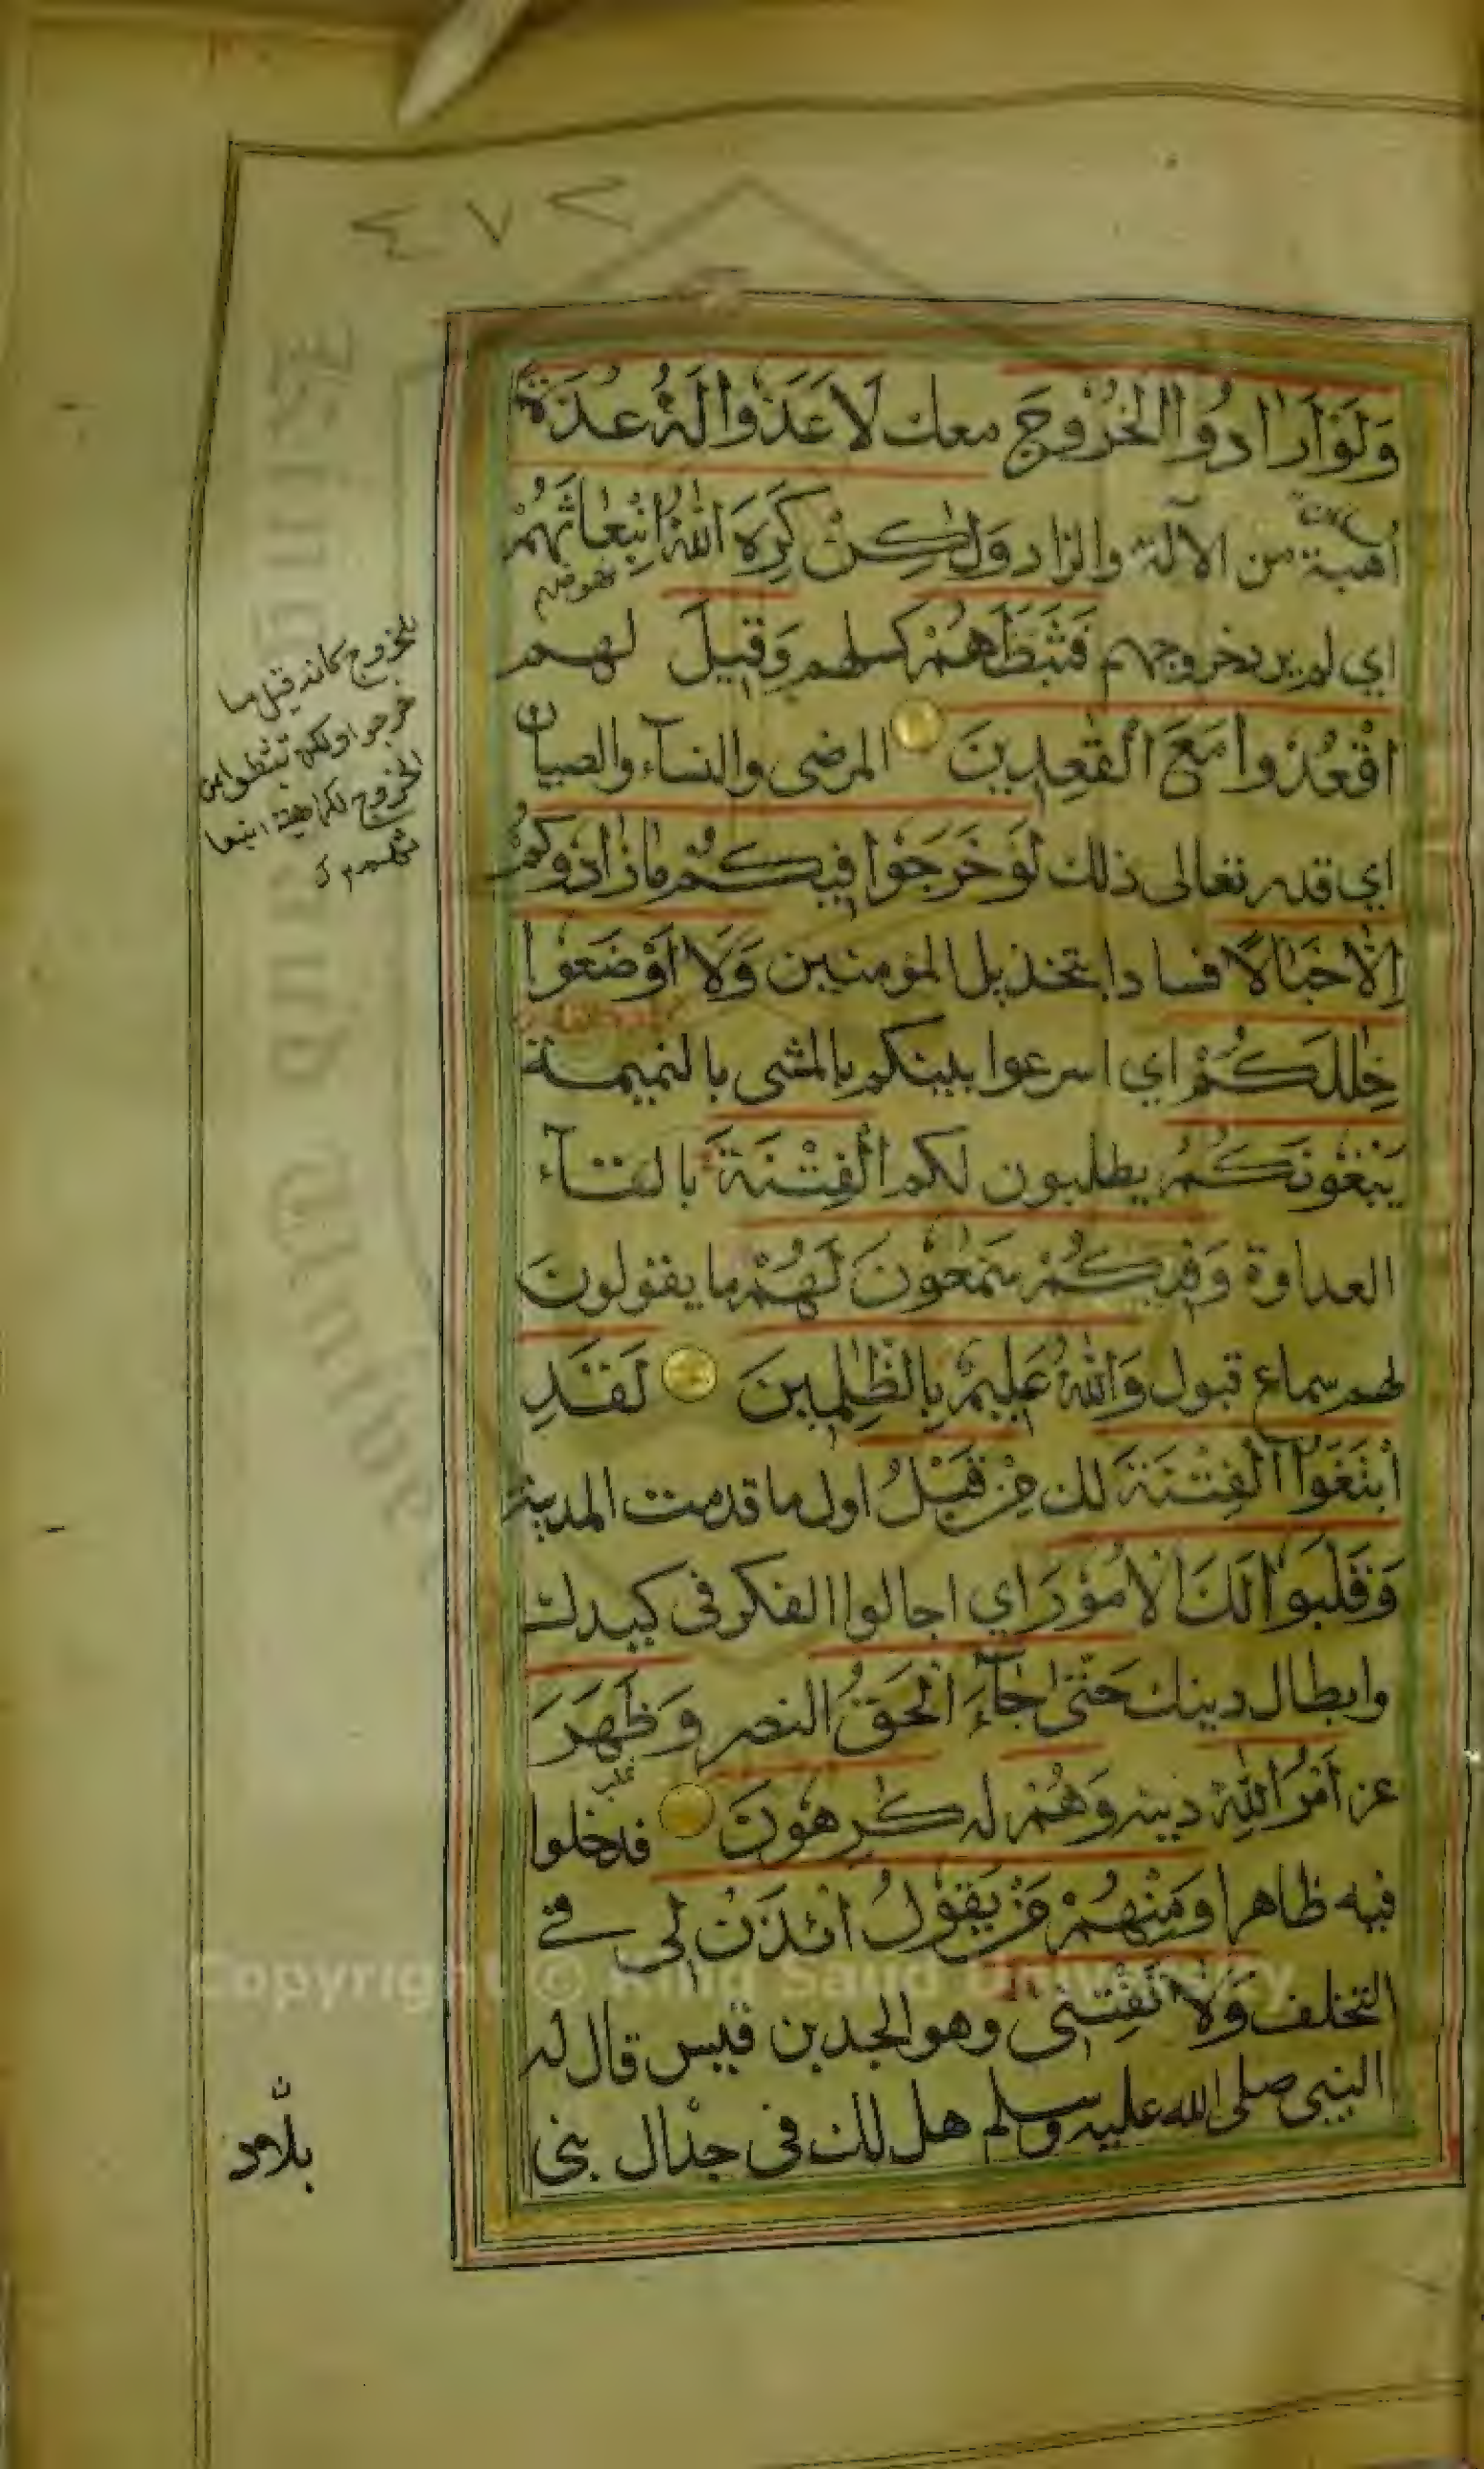 ٤٧٢
وَلَوْ اَرَادُوا الْخُرُوْجَ معك لَاَعَدُّوْا لَهٗ عُدَّةً
اهبة من الآلة والزاد وَلٰكِنْ كَرِهَ اللّٰهُ انْبِعَاثَهُمْ
اي لم يرد خروجهم فَثَبَّطَهُمْ كسلهم وَقِيلَ لهم
اقْعُدُوْا مَعَ الْقٰعِدِينَ المرضى والنسآء والصبيان
اي قدر تعالى ذلك لَوْ خَرَجُوْا فِيكُمْ مَا زَادُوكُمْ
اِلَّا خَبَالًا فسادا بتخذيل المؤمنين وَلَا اَوْضَعُوْا
خِلٰلَكُمْ اي اسرعوا بينكم بالمشى بالنميمة
يَبْغُوْنَكُمُ يطلبون لكم الْفِتْنَةَ بالقآء
العداوة وَفِيكُمْ سَمّٰعُوْنَ لَهُمْ ما يقولون
لهم سماع قبول وَاللّٰهُ عَلِيمٌ بِالظّٰلِمِينَ لَقَدِ
ابْتَغَوُا الْفِتْنَةَ لك مِنْ قَبْلُ اول ما قدمت المدينة
وَقَلَّبُوْا لَكَ الْاُمُوْرَ اي اجالوا الفكر فى كيدك
وابطال دينك حَتّٰى جَآءَ الْحَقُّ النصر وَظَهَرَ
عز اَمْرُ اللّٰهِ دينه وَهُمْ له كٰرِهُوْنَ فدخلوا
فيه ظاهرا وَمِنْهُمْ مَنْ يَقُوْلُ ائْذَنْ لِى فى
التخلف وَلَا تَفْتِنِّى وهو الجد بن قيس قال له
النبى صلى الله عليه وسلم هل لك فى جدال بنى
نهوضهم
غلب
للخروج كانه قيل ما
خرجوا ولكن تثبطوا عن
الخروج لكراهة انبعا
ثهم
Copyright © King Saud University